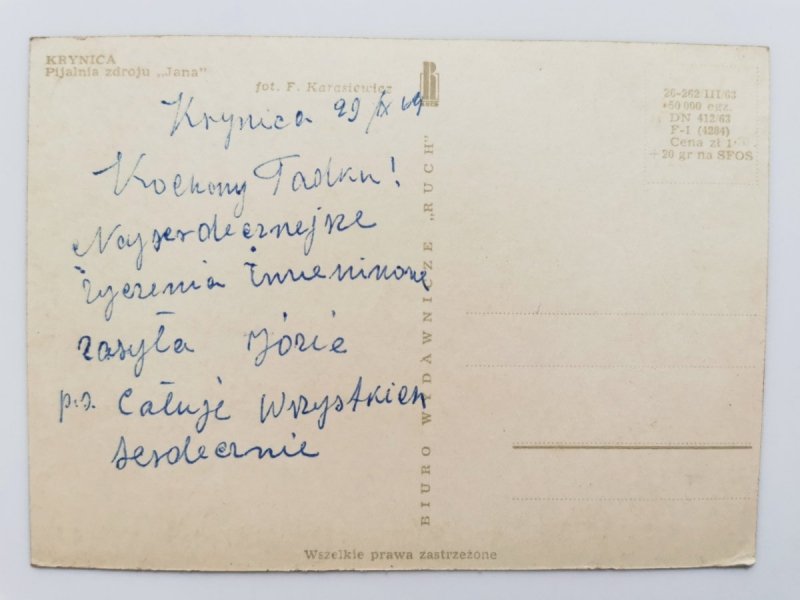 KRYNICA
Pijalnia zdroju „Jana"
fot. F. Karasiewicz
Krynica 29/IX 64
Kochany Tadku!
Najserdeczniejsze
życzenia Imieninowe
zasyła Józie
p.s. Całuje wszystkich
serdecznie
BIURO WYDAWNICZE „RUCH"
26-262/III/63
50 000 egz.
DN 412/63
F-I (4284)
Cena zł 1
+ 20 gr na SFOS
Wszelkie prawa zastrzeżone